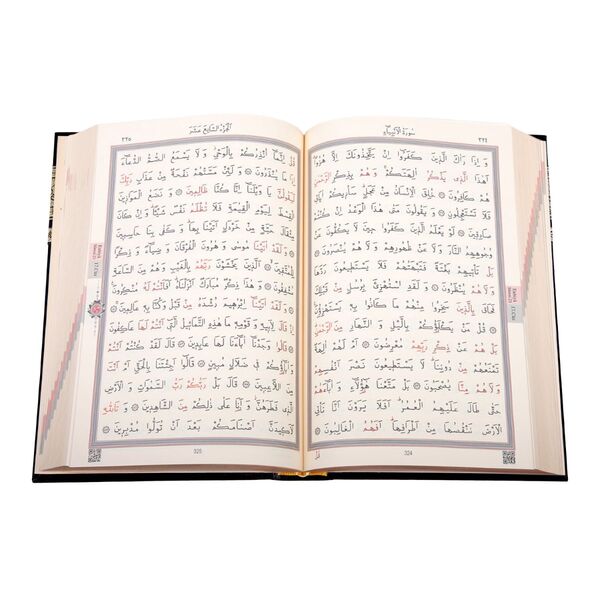 سُورَةُ الْاَنْبِيَاءِ
٣٢٤
وَاِذَا رَاٰكَ الَّذ۪ينَ كَفَرُٓوا اِنْ يَتَّخِذُونَكَ اِلَّا هُزُوًا
اَهٰذَا الَّذ۪ي يَذْكُرُ اٰلِهَتَكُمْ وَهُمْ بِذِكْرِ الرَّحْمٰنِ
هُمْ كَافِرُونَ ۞ خُلِقَ الْاِنْسَانُ مِنْ عَجَلٍ سَاُر۪يكُمْ اٰيَات۪ي
فَلَا تَسْتَعْجِلُونِ ۞ وَيَقُولُونَ مَتٰى هٰذَا الْوَعْدُ اِنْ كُنْتُمْ
صَادِق۪ينَ ۞ لَوْ يَعْلَمُ الَّذ۪ينَ كَفَرُوا ح۪ينَ لَا يَكُفُّونَ عَنْ
وُجُوهِهِمُ النَّارَ وَلَا عَنْ ظُهُورِهِمْ وَلَا هُمْ يُنْصَرُونَ ۞
بَلْ تَأْت۪يهِمْ بَغْتَةً فَتَبْهَتُهُمْ فَلَا يَسْتَط۪يعُونَ رَدَّهَا
وَلَا هُمْ يُنْظَرُونَ ۞ وَلَقَدِ اسْتُهْزِئَ بِرُسُلٍ مِنْ قَبْلِكَ
فَحَاقَ بِالَّذ۪ينَ سَخِرُوا مِنْهُمْ مَا كَانُوا بِه۪ يَسْتَهْزِؤُنَ
۞ قُلْ مَنْ يَكْلَؤُكُمْ بِالَّيْلِ وَالنَّهَارِ مِنَ الرَّحْمٰنِ
بَلْ هُمْ عَنْ ذِكْرِ رَبِّهِمْ مُعْرِضُونَ ۞ اَمْ لَهُمْ اٰلِهَةٌ
تَمْنَعُهُمْ مِنْ دُونِنَا لَا يَسْتَط۪يعُونَ نَصْرَ اَنْفُسِهِمْ
وَلَا هُمْ مِنَّا يُصْحَبُونَ ۞ بَلْ مَتَّعْنَا هٰٓؤُلَٓاءِ وَاٰبَٓاءَهُمْ
حَتّٰى طَالَ عَلَيْهِمُ الْعُمُرُ اَفَلَا يَرَوْنَ اَنَّا نَأْتِي
الْاَرْضَ نَنْقُصُهَا مِنْ اَطْرَافِهَا اَفَهُمُ الْغَالِبُونَ ۞
324
قُلْ
اَلْجُزْءُ السَّابِعَ عَشَرَ
٣٢٥
قُلْ اِنَّمَٓا اُنْذِرُكُمْ بِالْوَحْيِ وَلَا يَسْمَعُ الصُّمُّ الدُّعَٓاءَ
اِذَا مَا يُنْذَرُونَ ۞ وَلَئِنْ مَسَّتْهُمْ نَفْحَةٌ مِنْ عَذَابِ رَبِّكَ
لَيَقُولُنَّ يَا وَيْلَنَٓا اِنَّا كُنَّا ظَالِم۪ينَ ۞ وَنَضَعُ الْمَوَاز۪ينَ
الْقِسْطَ لِيَوْمِ الْقِيٰمَةِ فَلَا تُظْلَمُ نَفْسٌ شَيْـًٔا وَاِنْ كَانَ
مِثْقَالَ حَبَّةٍ مِنْ خَرْدَلٍ اَتَيْنَا بِهَا وَكَفٰى بِنَا حَاسِب۪ينَ
۞ وَلَقَدْ اٰتَيْنَا مُوسٰى وَهٰرُونَ الْفُرْقَانَ وَضِيَٓاءً وَذِكْرًا
لِلْمُتَّق۪ينَ ۞ اَلَّذ۪ينَ يَخْشَوْنَ رَبَّهُمْ بِالْغَيْبِ وَهُمْ مِنَ السَّاعَةِ
مُشْفِقُونَ ۞ وَهٰذَا ذِكْرٌ مُبَارَكٌ اَنْزَلْنَاهُ اَفَاَنْتُمْ لَهُ مُنْكِرُونَ
۞ وَلَقَدْ اٰتَيْنَٓا اِبْرٰه۪يمَ رُشْدَهُ مِنْ قَبْلُ وَكُنَّا بِه۪ عَالِم۪ينَ ۞
اِذْ قَالَ لِاَب۪يهِ وَقَوْمِه۪ مَا هٰذِهِ التَّمَاث۪يلُ الَّت۪ٓي اَنْتُمْ لَهَا عَاكِفُونَ
۞ قَالُوا وَجَدْنَٓا اٰبَٓاءَنَا لَهَا عَابِد۪ينَ ۞ قَالَ لَقَدْ كُنْتُمْ اَنْتُمْ
وَاٰبَٓاؤُكُمْ ف۪ي ضَلَالٍ مُب۪ينٍ ۞ قَالُٓوا اَجِئْتَنَا بِالْحَقِّ اَمْ اَنْتَ
مِنَ اللَّاعِب۪ينَ ۞ قَالَ بَلْ رَبُّكُمْ رَبُّ السَّمٰوَاتِ وَالْاَرْضِ
الَّذ۪ي فَطَرَهُنَّ وَاَنَا عَلٰى ذٰلِكُمْ مِنَ الشَّاهِد۪ينَ ۞ وَتَاللّٰهِ
لَاَك۪يدَنَّ اَصْنَامَكُمْ بَعْدَ اَنْ تُوَلُّوا مُدْبِر۪ينَ ۞
325